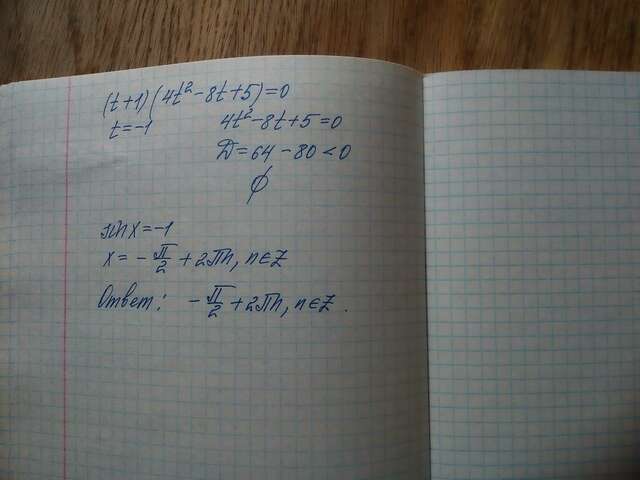 (t+1)(4t²-8t+5)=0
t=-1 4t²-8t+5=0
D=64-80<0
∅
sin x=-1
x=-π/2+2πn, n∈Z
Ответ: -π/2+2πn, n∈Z.